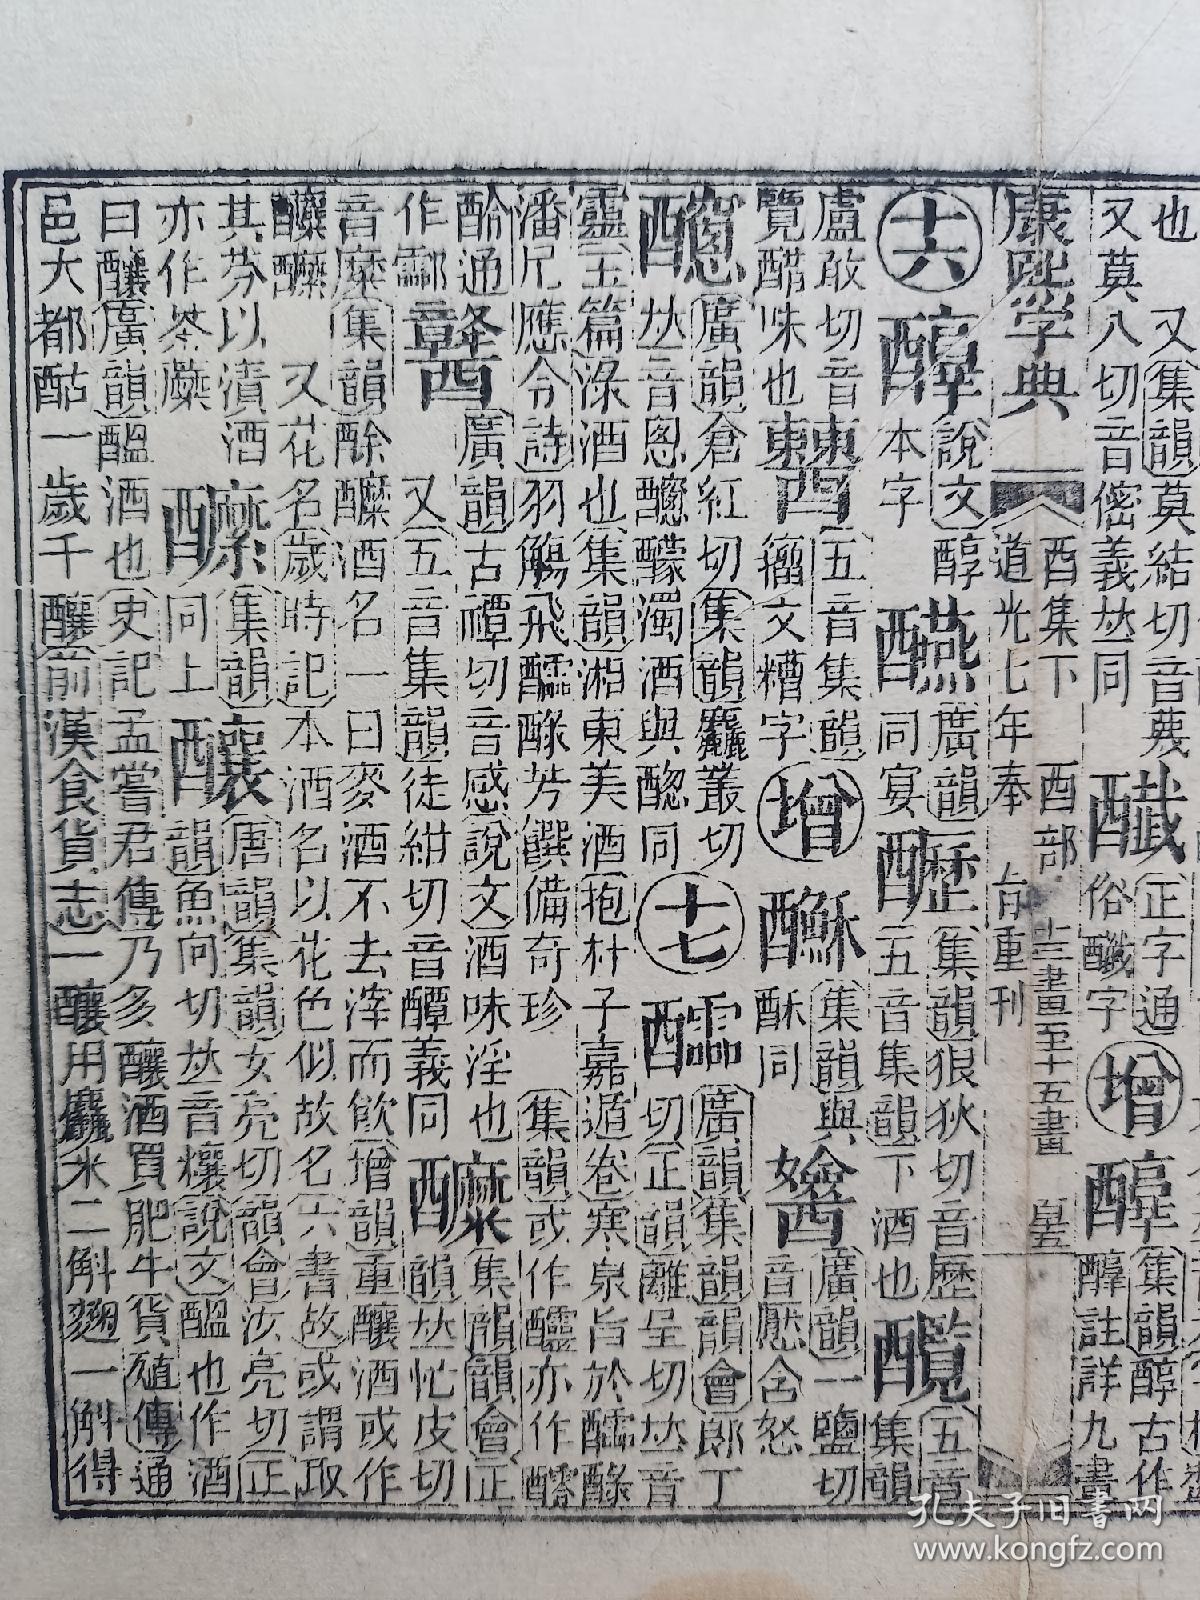 也　又集韻莫結切音蔑
又莫八切音㥪義𠀤同 正字通俗字 增 集韻醇古作醕註詳九畫
康熙字典 酉集下 酉部 十三畫至十五畫 百五
道光七年奉 旨重刊
十六 說文醇本字 醼 廣韻同宴 集韻狼狄切音歷五音集韻下酒也 五音集韻
盧敢切音覽醋味也 五音集韻籀文糟字 增 集韻與酥同 廣韻一鹽切音懕含怒
廣韻倉紅切集韻麤叢切𠀤音恖濁酒與同 十七 醽 廣韻集韻韻會郎丁切正韻離呈切𠀤音
靈玉篇淥酒也集韻湘東美酒抱朴子嘉遁卷寒泉旨於醽醁
潘尼應令詩羽觴飛醽醁芳饌備奇珍　集韻或作亦作
通作酃 廣韻古禫切音感說文酒味淫也　又五音集韻徒紺切音醰義同 醾 集韻韻會正韻𠀤忙皮切
音糜集韻酴醾酒名一曰麥酒不去滓而飮增韻重釀酒或作
又花名歲時記本酒名以花色似故名六書故或謂取
其芬以漬酒亦作荼蘪 集韻同上 釀 唐韻集韻女亮切韻會汝亮切正韻魚向切𠀤音說文醞也作酒
曰釀廣韻醞酒也史記孟嘗君傳乃多釀酒買肥牛貨殖傳通
邑大都酤一歲千釀前漢食貨志一釀用麤米二斛麴一斛得
孔夫子旧书网
www.kongfz.com